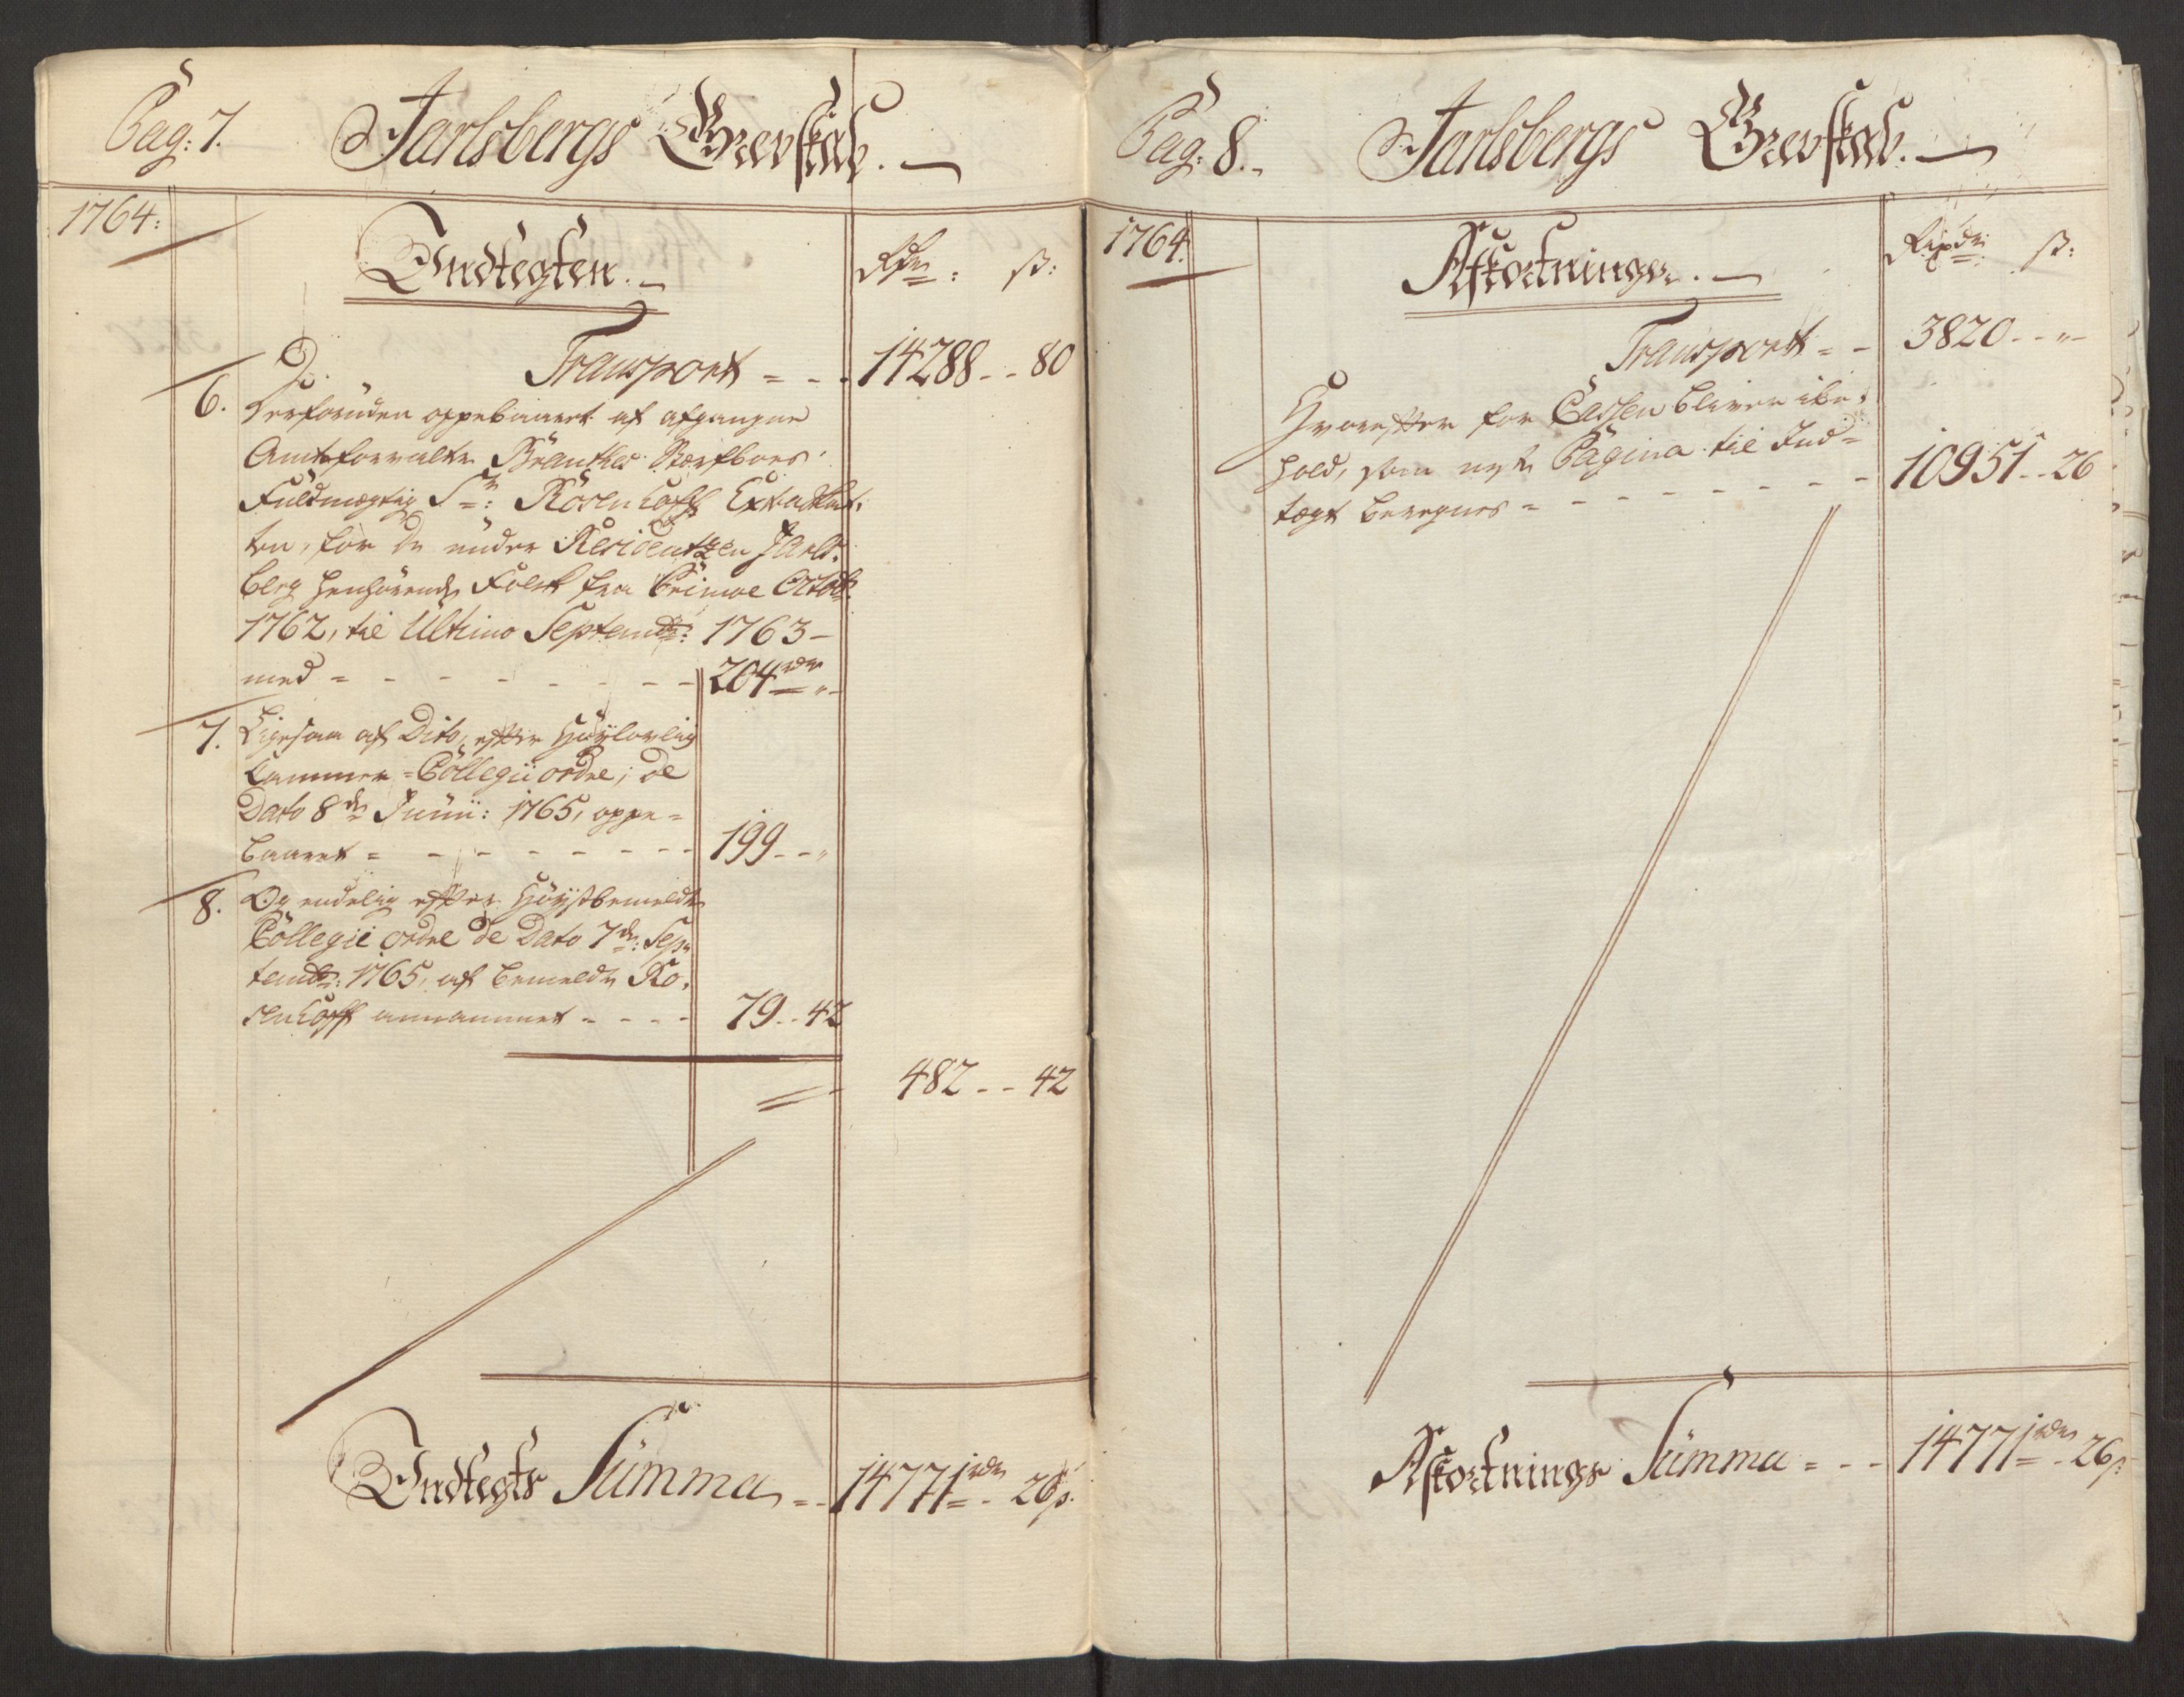 Pag: 7.
Jarlsbergs Grevskab.
1764:
Indtegten.
Rdr: ß:
Transport 14288 - - 80
6. Derforuden oppebaaret af afgangne
Amtsforvalter Stærfboes
Fuldmægtig Sr: Rosenhoff
ten, for de under Residentzen Jarls-
berg henhørende Folck fra Primoe Octobr:
1762, til Ultimo Septembr: 1763 -
med 204 rdr "
7. Ligesaa af Dito, efter Høylovlig
Cammer-Collegii ordre, de
Dato 8de Junii: 1765, oppe-
baaret 199 - - "
8. Og endelig efter Høystbemeldte
Collegii ordre de Dato 7de: Sep-
tembr: 1765, af bemeldte Ro-
senhoff annammet 79 - - 42
482 - - 42
Indtegts Summa 14771 rdr - 26 ß.
Pag: 8.
Jarlsbergs Grevskab.
1764.
Afkortninger.
Rixdr: ß:
Transport 3820 - - "
Hvorefter for Cassen bliver ibe-
hold, som neste Pagina til Ind-
tægt beregnes 10951 - - 26
Afkortnings Summa 14771 rdr - 26 ß